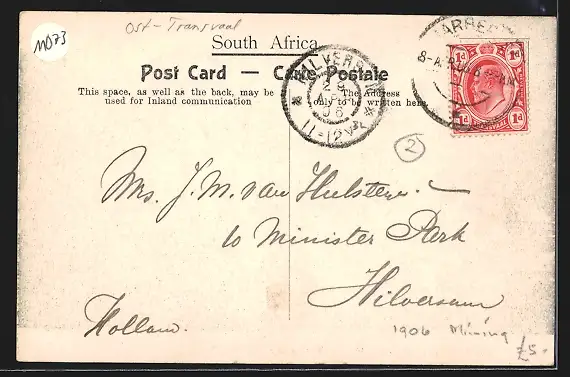 11073
Ost-Transvaal
South Africa.
Post Card — Carte Postale
This space, as well as the back, may be
used for Inland communication
The Address
only to be written here.
HILVERSUM
AP
06
11-12V
1d 1d
1d 1d
2
Mrs. J. M. van Hulsteyn.
10 Minister Park
Hilversum
Holland.
1906 Mining
£5.